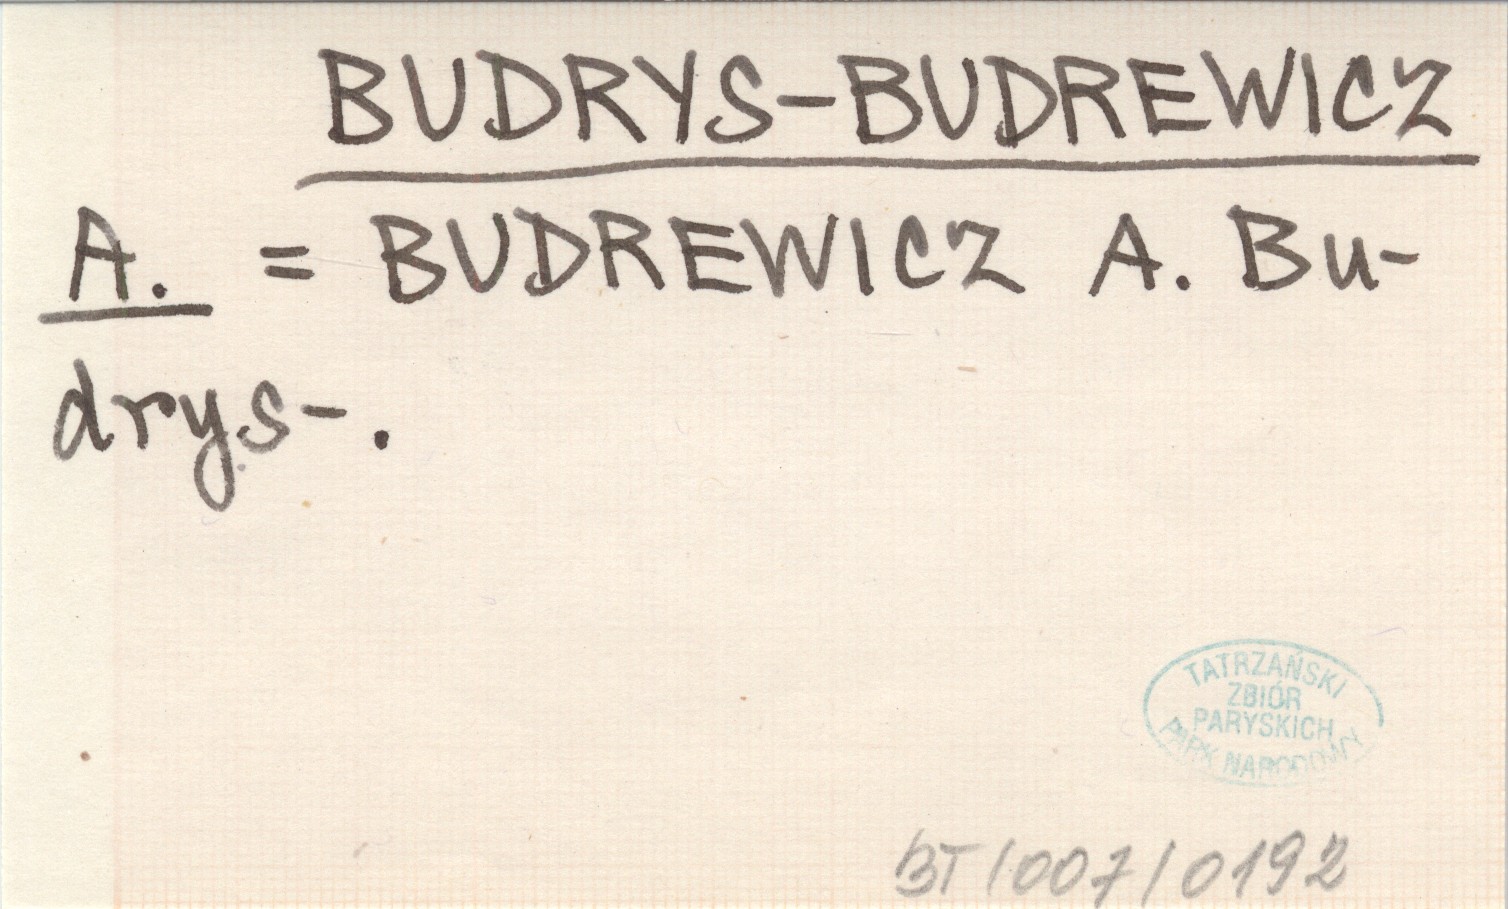 BUDRYS-BUDREWICZ
A. = BUDREWICZ A. Bu-
drys-.
TATRZAŃSKI
ZBIÓR
PARYSKICH
PARK NARODOWY
BT/007/0192